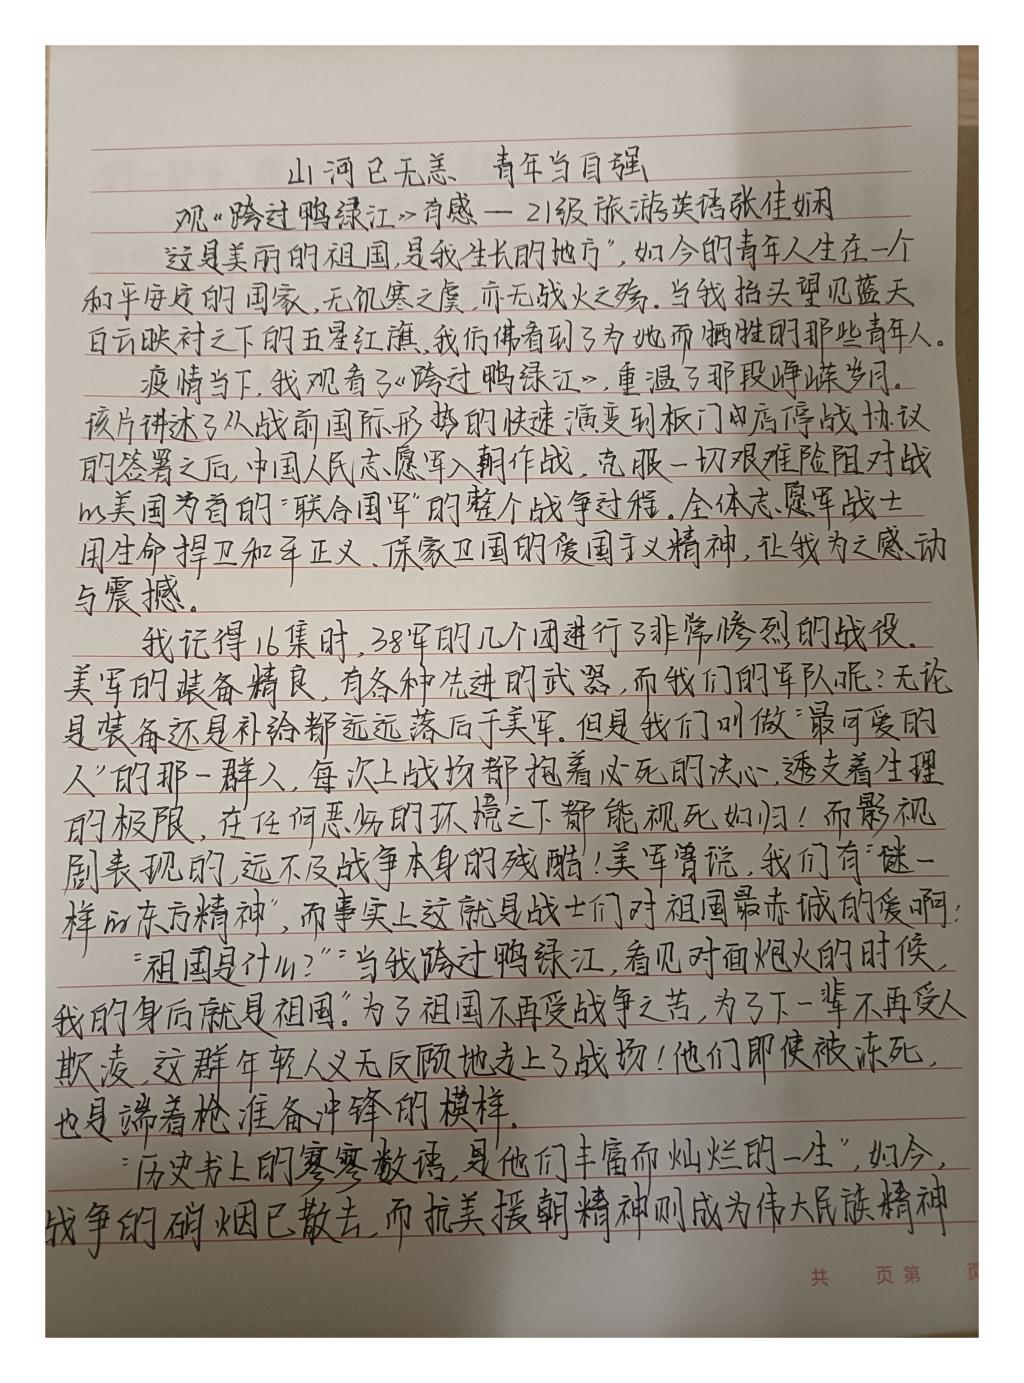 山河已无恙 青年当自强
观《跨过鸭绿江》有感—21级旅游英语张佳娴
“这是美丽的祖国,是我生长的地方”,如今的青年人生在一个
和平安定的国家,无饥寒之虞,亦无战火之殇.当我抬头望见蓝天
白云映衬之下的五星红旗,我仿佛看到了为她而牺牲的那些青年人。
疫情当下,我观看了《跨过鸭绿江》,重温了那段峥嵘岁月.
该片讲述了从战前国际形势的快速演变到板门店停战协议
的签署之后,中国人民志愿军入朝作战,克服一切艰难险阻对战
以美国为首的“联合国军”的整个战争过程.全体志愿军战士
用生命捍卫和平正义、保家卫国的爱国主义精神,让我为之感动
与震撼。
我记得16集时,38军的几个团进行了非常惨烈的战役.
美军的装备精良,有各种先进的武器,而我们的军队呢?无论
是装备还是补给都远远落后于美军.但是我们叫做“最可爱的
人”的那一群人,每次上战场都抱着必死的决心,透支着生理
的极限,在任何恶劣的环境之下都能视死如归!而影视
剧表现的,远不及战争本身的残酷!美军曾说,我们有“谜一
样的东方精神”,而事实上这就是战士们对祖国最赤诚的爱啊!
“祖国是什么?”“当我跨过鸭绿江,看见对面炮火的时候,
我的身后就是祖国”.为了祖国不再受战争之苦,为了下一辈不再受人
欺凌,这群年轻人义无反顾地走上了战场!他们即使被冻死,
也是端着枪准备冲锋的模样.
“历史书上的寥寥数语,是他们丰富而灿烂的一生”,如今,
战争的硝烟已散去,而抗美援朝精神则成为伟大民族精神
共 页第 页